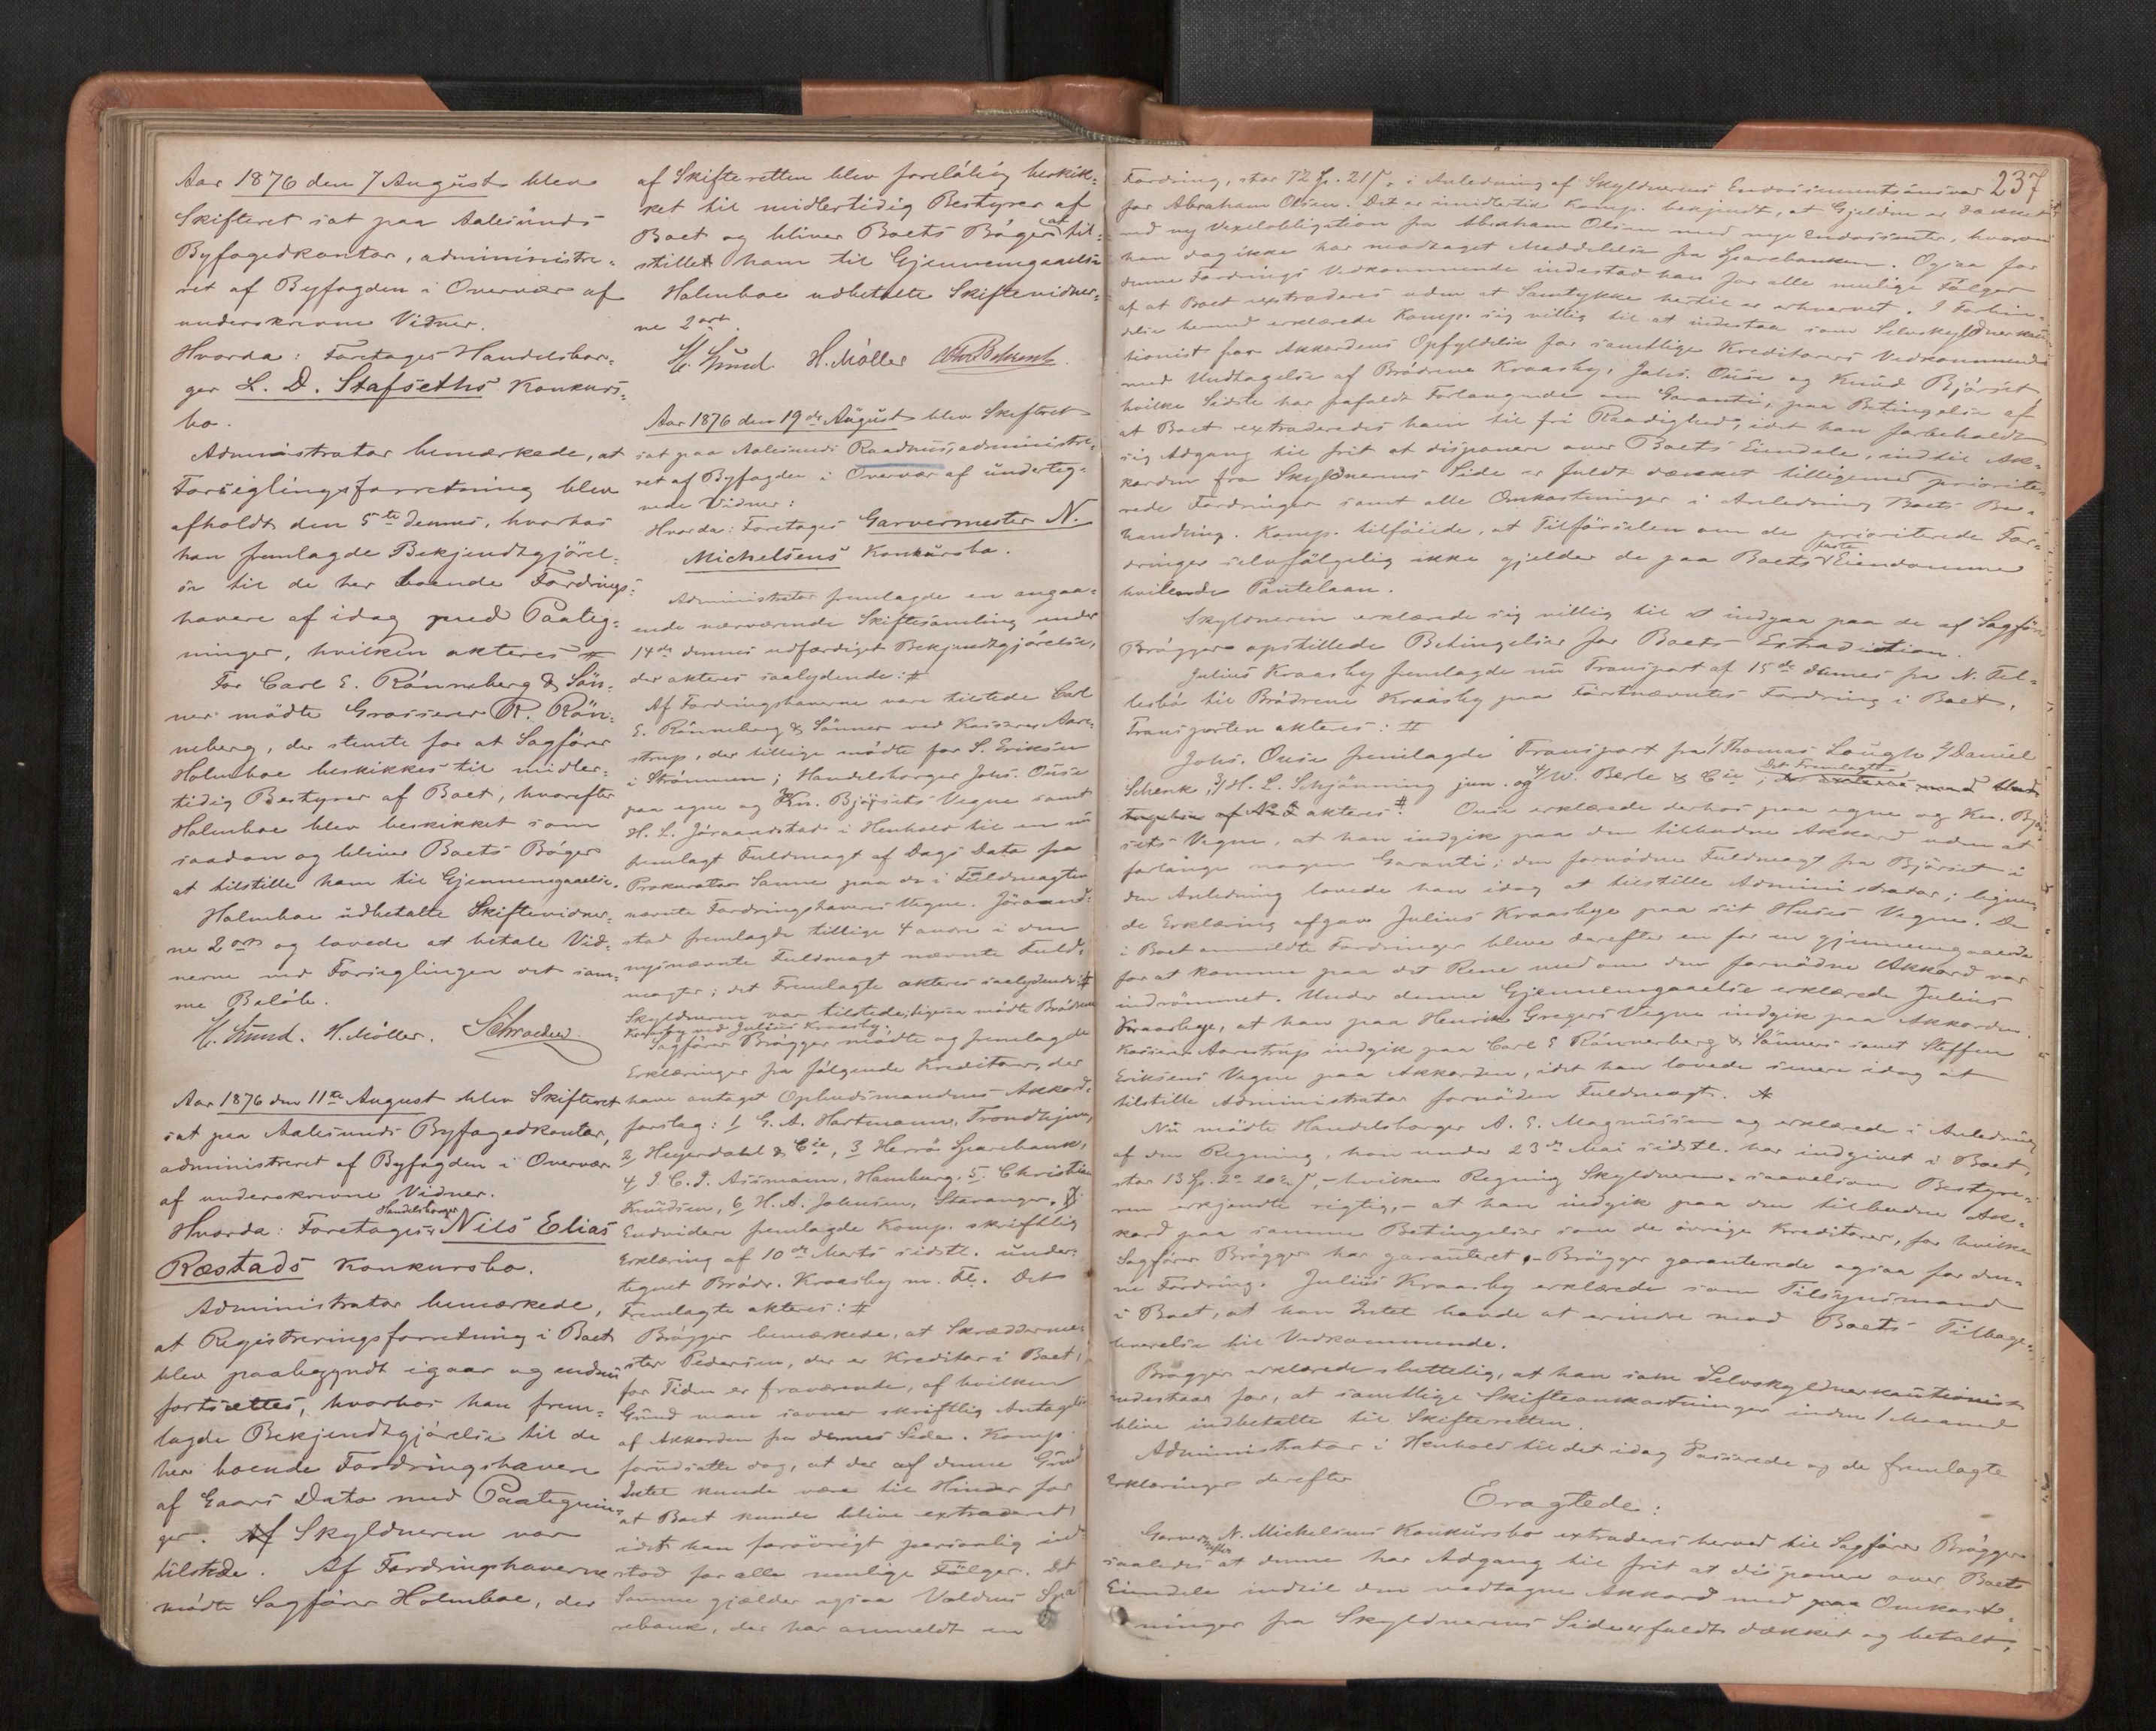 Aar 1876 den 7 August blev
Skifteret sat paa Aalesunds
Byfogedkontor, administre-
ret af Byfogden i Overvær af
underskrevne Vidner.
Hvorda: Foretages Handelsbor-
ger L. D. Stafseths Konkurs-
bo.
Administrator bemærkede, at
Forseglingsforretning blev
afholdt den 5te dennes, hvorhos
han fremlagde Bekjendtgjørel-
se til de her boende Fordrings-
havere af idag med Paateg-
ninger, hvilken akteres #
For Carl E. Rønneberg & Søn-
ner mødte Grosserer R. Røn-
neberg, der stemte for at Sagfører
Holmboe beskikkes til midler-
tidig Bestyrer af Boet, hvorefter
Holmboe blev beskikket som
saadan og bliver Boets Bøger
at tilstille ham til Gjennemgaaelse.
Holmboe udbetalte Skiftevidner-
ne 2 ort og lovede at betale Vid-
nerne ved Forseglingen det sam-
me Beløb.
H. Grind. H. Møller. Schrøder
Aar 1876 den 11te August blev Skifteret
sat paa Aalesunds Byfogedkontor,
administreret af Byfogden i Overvær
af underskrevne Vidner.
Hvorda: Foretages Handelsborger Nils Elias
Ræstads Konkursbo.
Administrator bemærkede,
at Registreringsforretning i Boet
blev paabegyndt igaar og endnu
fortsættes, hvorhos han frem-
lagde Bekjendtgjørelse til de
her boende Fordringshavere
af Gaars Dato med Paategnin-
ger. Skyldneren var
tilstede. Af Fordringshaverne
mødte Sagfører Holmboe, der
af Skifteretten blev foreløbig beskik-
ket til midlertidig Bestyrer af
Boet og bliver Boets Bøger at til-
stille ham til Gjennemgaaelse
Holmboe udbetalte Skiftevidner-
ne 2 ort
H. Grind. H. Møller
Aar 1876 den 19de August blev Skifteret
sat paa Aalesunds Raadhus, administre-
ret af Byfogden i Overvær af underteg-
nede Vidner:
Hvorda: Foretages Garvermester N.
Michelsens Konkursbo.
Administrator fremlagde en angaa-
ende nærværende Skiftesamling under
14de dennes udfærdiget Bekjendtgjørelse,
der akteres saalydende: #
Af Fordringshaverne vare tilstede Carl
E. Rønneberg & Sønner ved Kasserer Aare-
strup, der tillige mødte for S. Eriksen
i Strømmen; Handelsborger Johs. Ouse
paa egne og Kn. Bjørsets Vegne samt
H. L. Jøraandstad i Henhold til en nu
fremlagt Fuldmagt af Dags Dato fra
Prokurator Sanne paa de i Fuldmagten
nævnte Fordringshaveres Vegne. Jøraand-
stad fremlagde tillige 4 andre i den
nysnævnte Fuldmagt nævnte Fuld-
magter; det Fremlagte akteres saalydende #
Skyldneren var tilstede; ligesaa mødte Brødrene
Kraasby ved Julius Kraasby.
Sagfører Brøgger mødte og fremlagde
Erklæringer fra følgende Kreditorer, der
have antaget Opbudsmandens Akkord-
forslag: 1 G. A. Hartmann, Trondhjem,
2, Heyerdahl & Cie, 3 Herrø Sparebank,
4 J. C. J. Assmann, Hamburg, 5. Christian
Knudsen, 6 H. A. Johnsen, Stavanger.
Endvidere fremlagde Komp. skriftlig
Erklæring af 10de Marts sidstl. under-
tegnet Brødr. Kraasby m. Fl. Det
Fremlagte akteres: #
Brøgger bemærkede, at Skrædderme-
ster Pedersen, der er Kreditor i Boet,
for Tiden er fraværende, af hvilken
Grund man savner skriftlig Antagelse
af Akkorden fra dennes Side. Komp.
forudsatte dog, at der af denne Grund
Intet kunde være til Hinder for
at Boet kunde blive extraderet,
idet han forøvrigt personlig ind-
stod for alle mulige Følger. Det
Samme gjælder ogsaa Voldens Spa-
rebank, der har anmeldt en
237
Fordring, stor 72 Sp. 21 s, i Anledning af Skyldnerens Endossementsansvar
for Abraham Olsen. Det er imidlertid Komp. bekjendt, at Gjelden er dækket
med ny Vexelobligation fra Abraham Olsen med nye Endossenter, hvorom
han dog ikke har modtaget Meddelelse fra Sparebanken. Ogsaa for
denne Fordrings Vedkommende indestod han for alle mulige Følger
af at Boet extraderes uden at Samtykke hertil er erhvervet. I Forbin-
delse hermed erklærede Komp. sig villig til at indestaa som Selvskyldnerkau-
tionist for Akkordens Opfyldelse for samtlige Kreditorers Vedkommende
med Undtagelse af Brødrene Kraasby, Johs. Ouse og Knud Bjørset,
hvilke Sidste har frafaldt Forlangende om Garanti, paa Betingelse af
at Boet extraderedes ham til fri Raadighed, idet han forbeholdt
sig Adgang til frit at disponere over Boets Eiendele, indtil Ak-
korden fra Skyldnerens Side er fuldt dækket tilligemed priorite-
rede Fordringer samt alle Omkostninger i Anledning Boets Be-
handling. Komp. tilføiede, at Tilførselen om de prioriterede For-
dringer selvfølgelig ikke gjelder de paa Boets faste Eiendomme
hvilende Pantelaan.
Skyldneren erklærede sig villig til at indgaa paa de af Sagfører
Brøgger opstillede Betingelser for Boets Extradiction.
Julius Kraasby fremlagde nu Transport af 15de dennes fra N. Tel-
lesbø til Brødrene Kraasby paa Førstnævntes Fordring i Boet,
Transporten akteres: #
Johs. Ouse fremlagde Transport fra 1/ Thomas Lough 2/ Daniel
Schenk, 3/ H. L. Schjønning jun. og 4/ W. Berle & Cie; Det Fremlagte
akteres #. Ouse erklærede derhos paa egne og Kn. Bjør-
sets Vegne, at han indgik paa den tilbudne Akkord uden at
forlange nogen Garanti; den fornødne Fuldmagt fra Bjørset i
den Anledning lovede han idag at tilstille Administrator; lignen-
de Erklæring afgav Julius Kraasbye paa sit Huses Vegne. De
i Boet anmeldte Fordringer bleve derefter en for en gjennemgaaede
for at komme paa det Rene med om den fornødne Akkord var
indrømmet. Under denne Gjennemgaaelse erklærede Julius
Kraasbye, at han paa Henrik Gregers Vegne indgik paa Akkorden.
Kasserer Aarestrup indgik paa Carl E Rønnerberg & Sønners samt Steffen
Eriksens Vegne paa Akkorden, idet han lovede senere idag at
tilstille Administrator fornøden Fuldmagt.
Nu mødte Handelsborger A. E. Magnussen og erklærede i Anledning
af den Regning, han under 23de Mai sidstl. har indgivet i Boet,
stor 13 Sp. 2 20 s, - hvilken Regning Skyldneren saavelsom Bestyre-
ren erkjendte rigtig, - at han indgik paa den tilbudne Ak-
kord paa samme Betingelser som de øvrige Kreditorer, for hvilke
Sagfører Brøgger har garanteret, - Brøgger garanterede ogsaa for den-
ne Fordring. Julius Kraasby erklærede som Tilsynsmand
i Boet, at han Intet havde at erindre mod Boets Tilbage-
leverelse til Vedkommende.
Brøgger erklærede sluttelig, at han som Selvskyldnerkautionist
indestaar for, at samtlige Skifteomkostninger inden 1 Maaned
blive indbetalte til Skifteretten.
Administrator i Henhold til det idag Passerede og de fremlagte
Erklæringer derefter
Eragtede:
Garvermester N. Michelsens Konkursbo extraderes herved til Sagfører Brøgger
saaledes at denne har Adgang til frit at disponere over Boets
Eiendele indtil den vedtagne Akkord med Omkost-
ninger fra Skyldnerens Side er fuldt dækket og betalt,